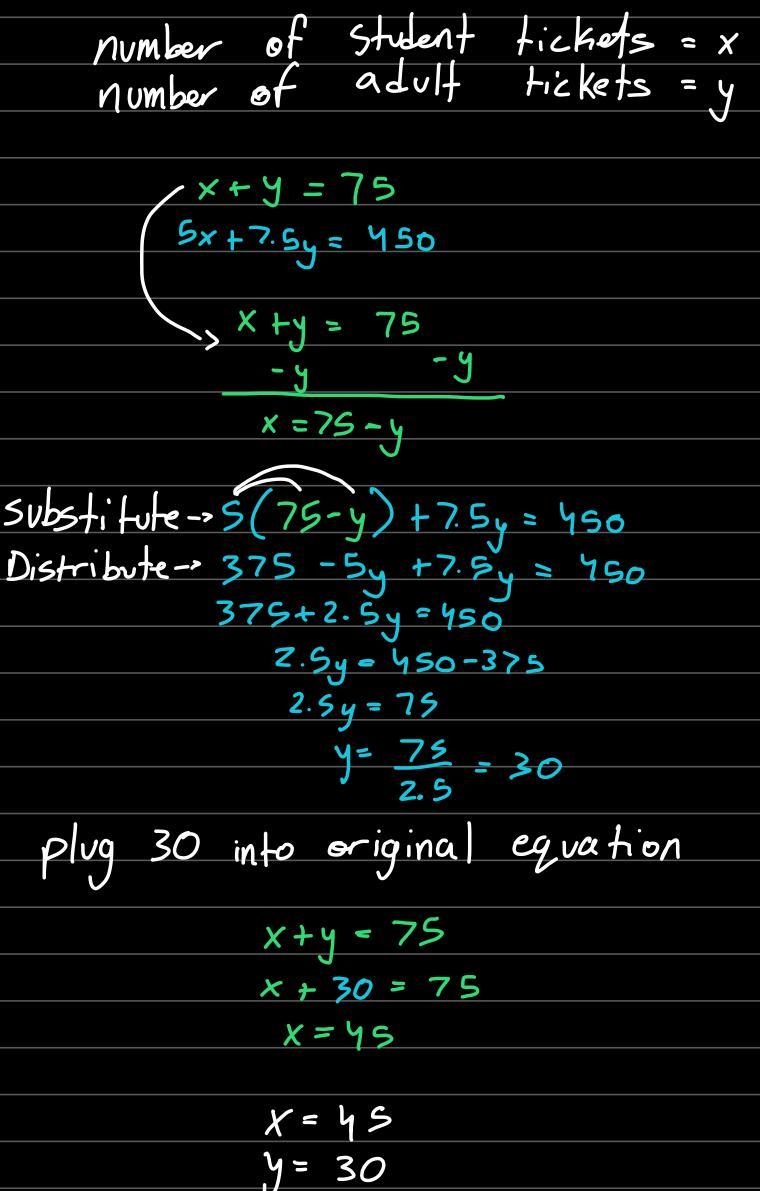 number of student tickets = x
number of adult tickets = y
x + y = 75
5x + 7.5y = 450
x + y = 75
- y - y
x = 75 - y
Substitute → 5(75 - y) + 7.5y = 450
Distribute → 375 - 5y + 7.5y = 450
375 + 2.5y = 450
2.5y = 450 - 375
2.5y = 75
y = 75/2.5 = 30
plug 30 into original equation
x + y = 75
x + 30 = 75
x = 45
x = 45
y = 30